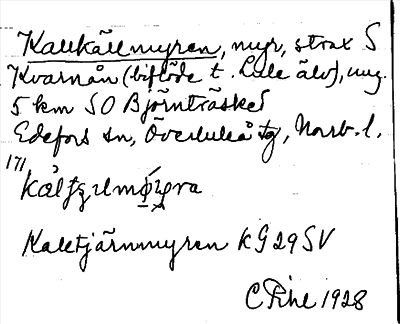 Kallkällmyren, myr, strax S
Kvarnån (biflöde t. Lule älv), ung.
5 km SO Björnträsket
Edefors sn, Överluleå tg, Norrb. l.
171
Kaletjärnmyren KG 29 SV
C Pihl 1928